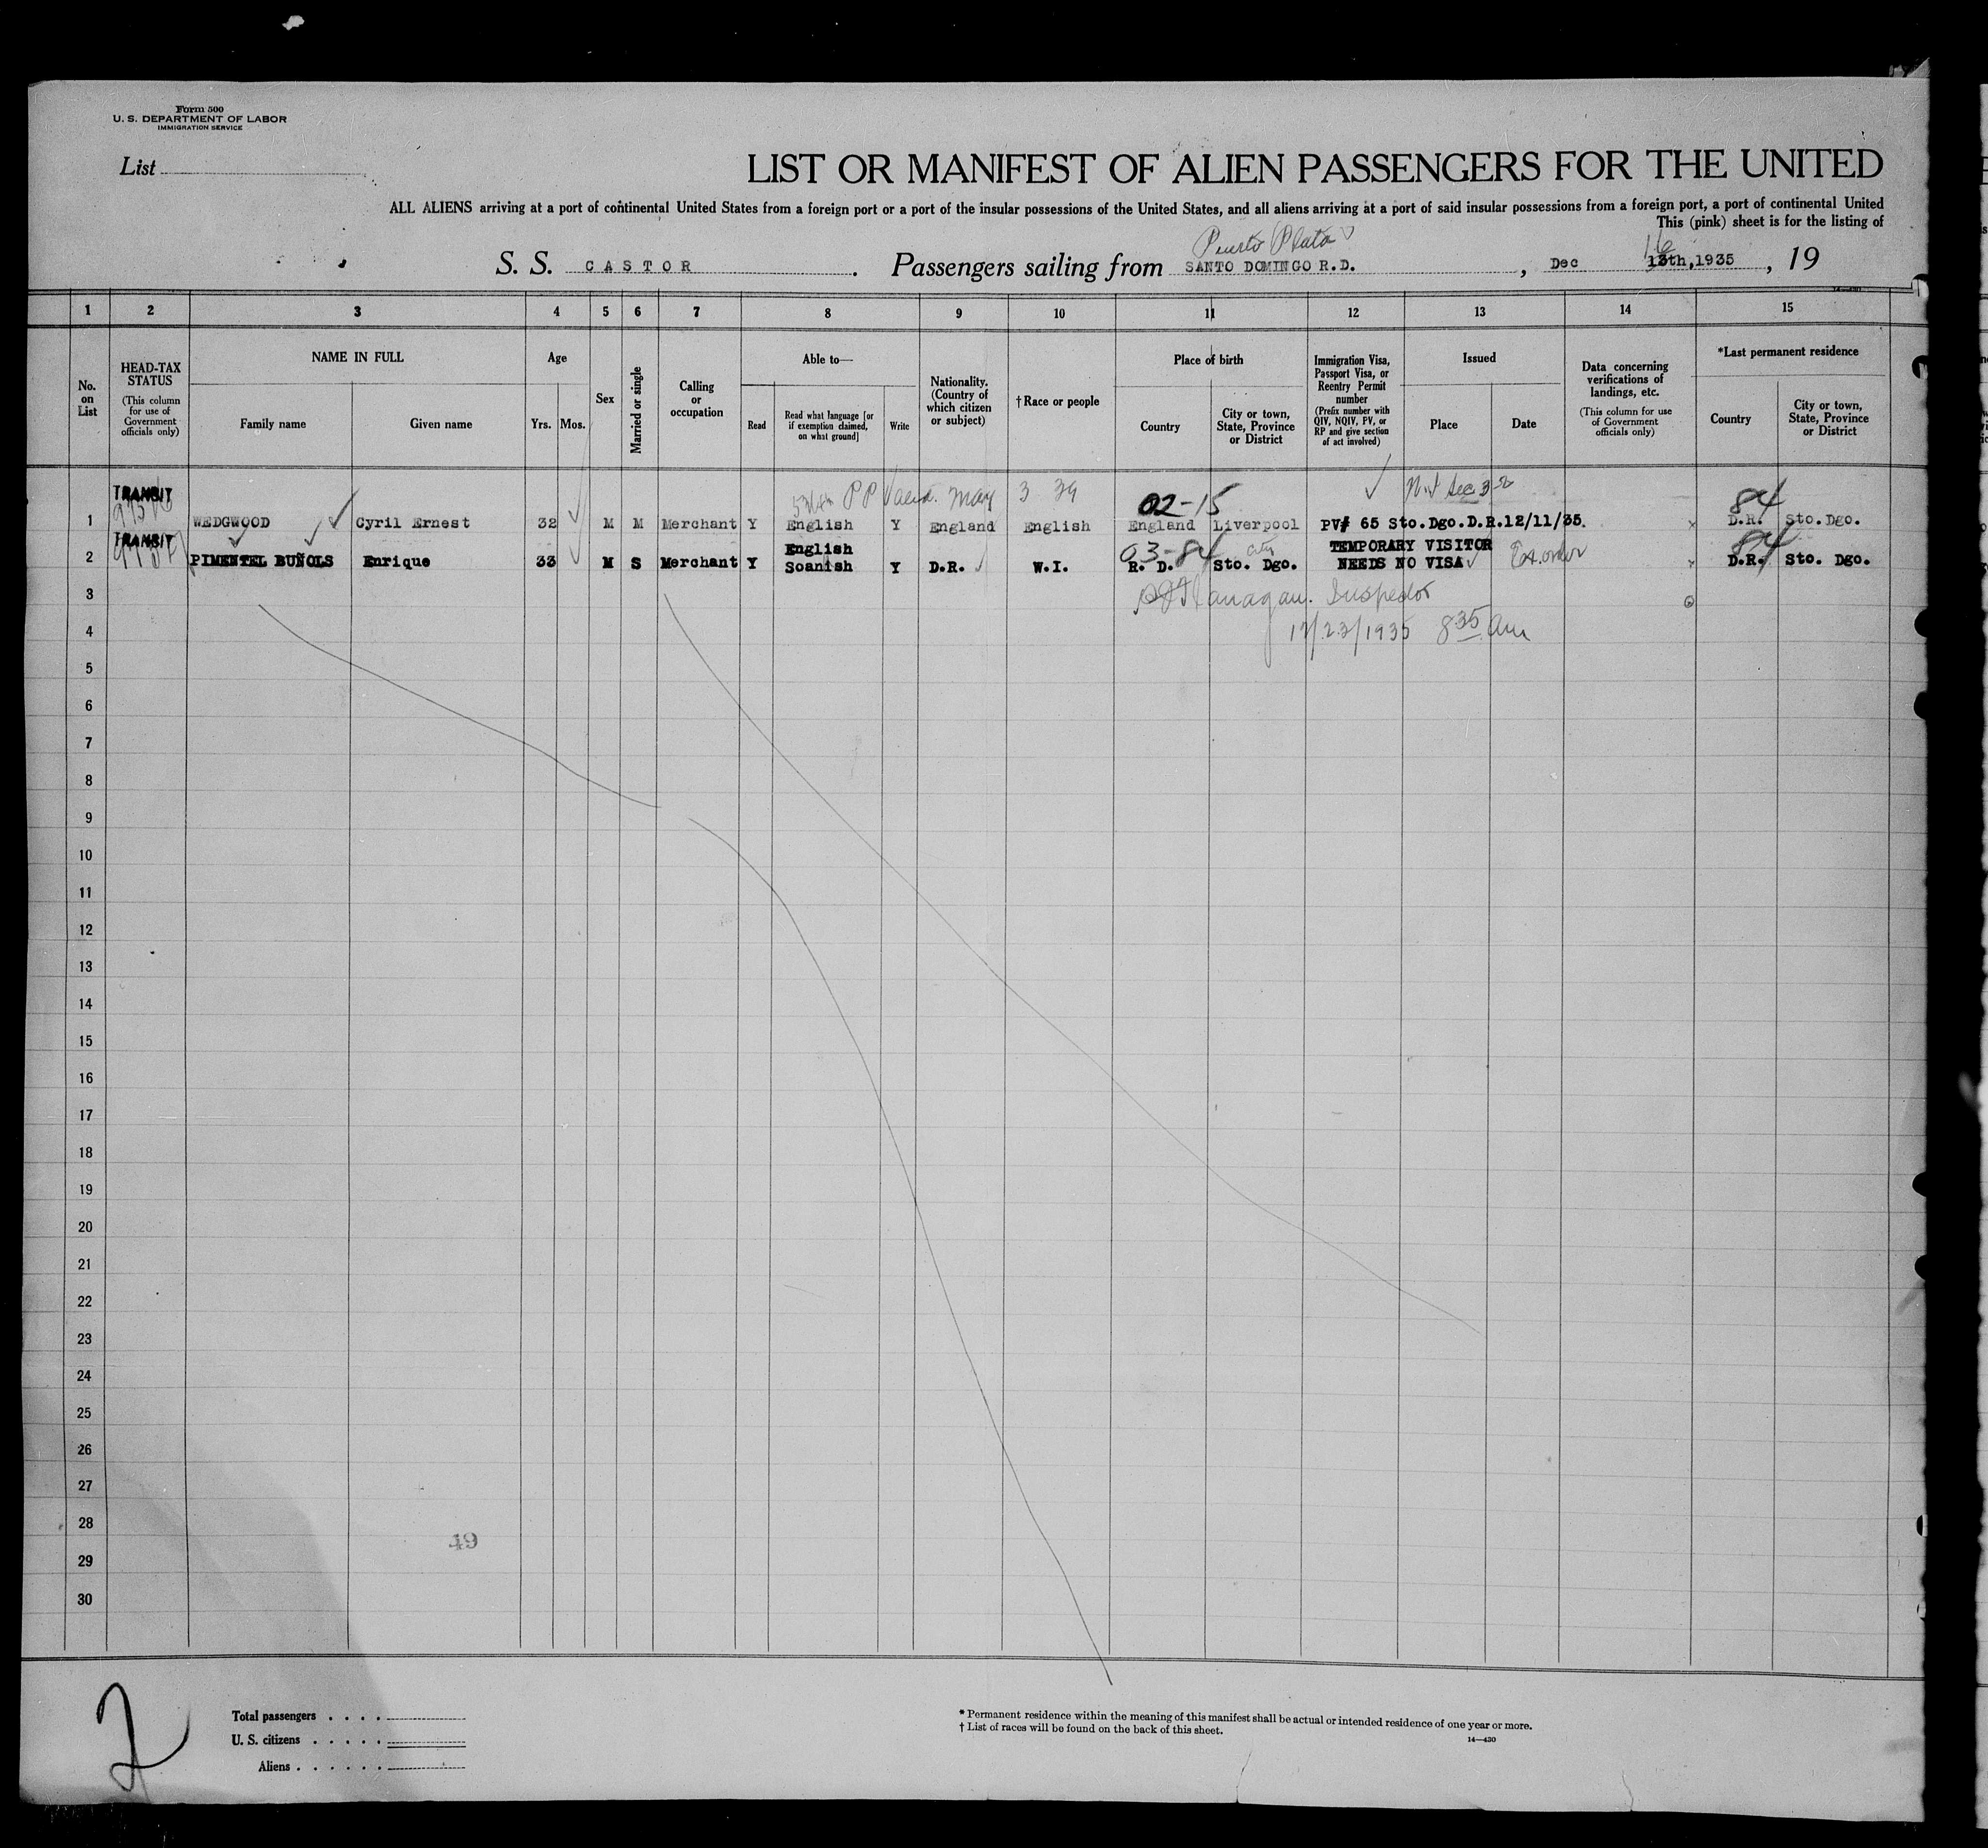 Form 500
U. S. DEPARTMENT OF LABOR
IMMIGRATION SERVICE
List
LIST OR MANIFEST OF ALIEN PASSENGERS FOR THE UNITED
ALL ALIENS arriving at a port of continental United States from a foreign port or a port of the insular possessions of the United States, and all aliens arriving at a port of said insular possessions from a foreign port, a port of continental United
This (pink) sheet is for the listing of
Puerto Plata
16
S. S. CASTOR. Passengers sailing from SANTO DOMINGO R.D., Dec 13th,1935, 19
1 2 3 4 5 6 7 8 9 10 11 12 13 14 15
No. on List
HEAD-TAX STATUS
(This column for use of Government officials only)
NAME IN FULL
Family name
Given name
Age
Yrs.
Mos.
Sex
Married or single
Calling or occupation
Able to—
Read
Read what language [or if exemption claimed, on what ground]
Write
Nationality. (Country of which citizen or subject)
† Race or people
Place of birth
Country
City or town, State, Province or District
Immigration Visa, Passport Visa, or Reentry Permit number
(Prefix number with QIV, NQIV, PV, or RP and give section of act involved)
Issued
Place
Date
Data concerning verifications of landings, etc.
(This column for use of Government officials only)
*Last permanent residence
Country
City or town, State, Province or District
TRANSIT
PP May 3 02-15 84
1 WEDGWOOD Cyril Ernest 32 M M Merchant Y English Y England English England Liverpool PV# 65 Sto.Dgo.D.R.12/11/35. D.R. Sto.Dgo.
TRANSIT English 03-84 City TEMPORARY VISITOR 84
2 PIMENTEL BUÑOLS Enrique 33 M S Merchant Y Soanish Y D.R. W.I. R. D. Sto. Dgo. NEEDS NO VISA D.R. Sto. Dgo.
3 Flanagan. Inspector
4 12/23/1935 8 35 am
5
6
7
8
9
10
11
12
13
14
15
16
17
18
19
20
21
22
23
24
25
26
27
28
49
29
30
2
Total passengers . . . .
U. S. citizens . . . . .
Aliens . . . . . .
* Permanent residence within the meaning of this manifest shall be actual or intended residence of one year or more.
† List of races will be found on the back of this sheet.
14—430